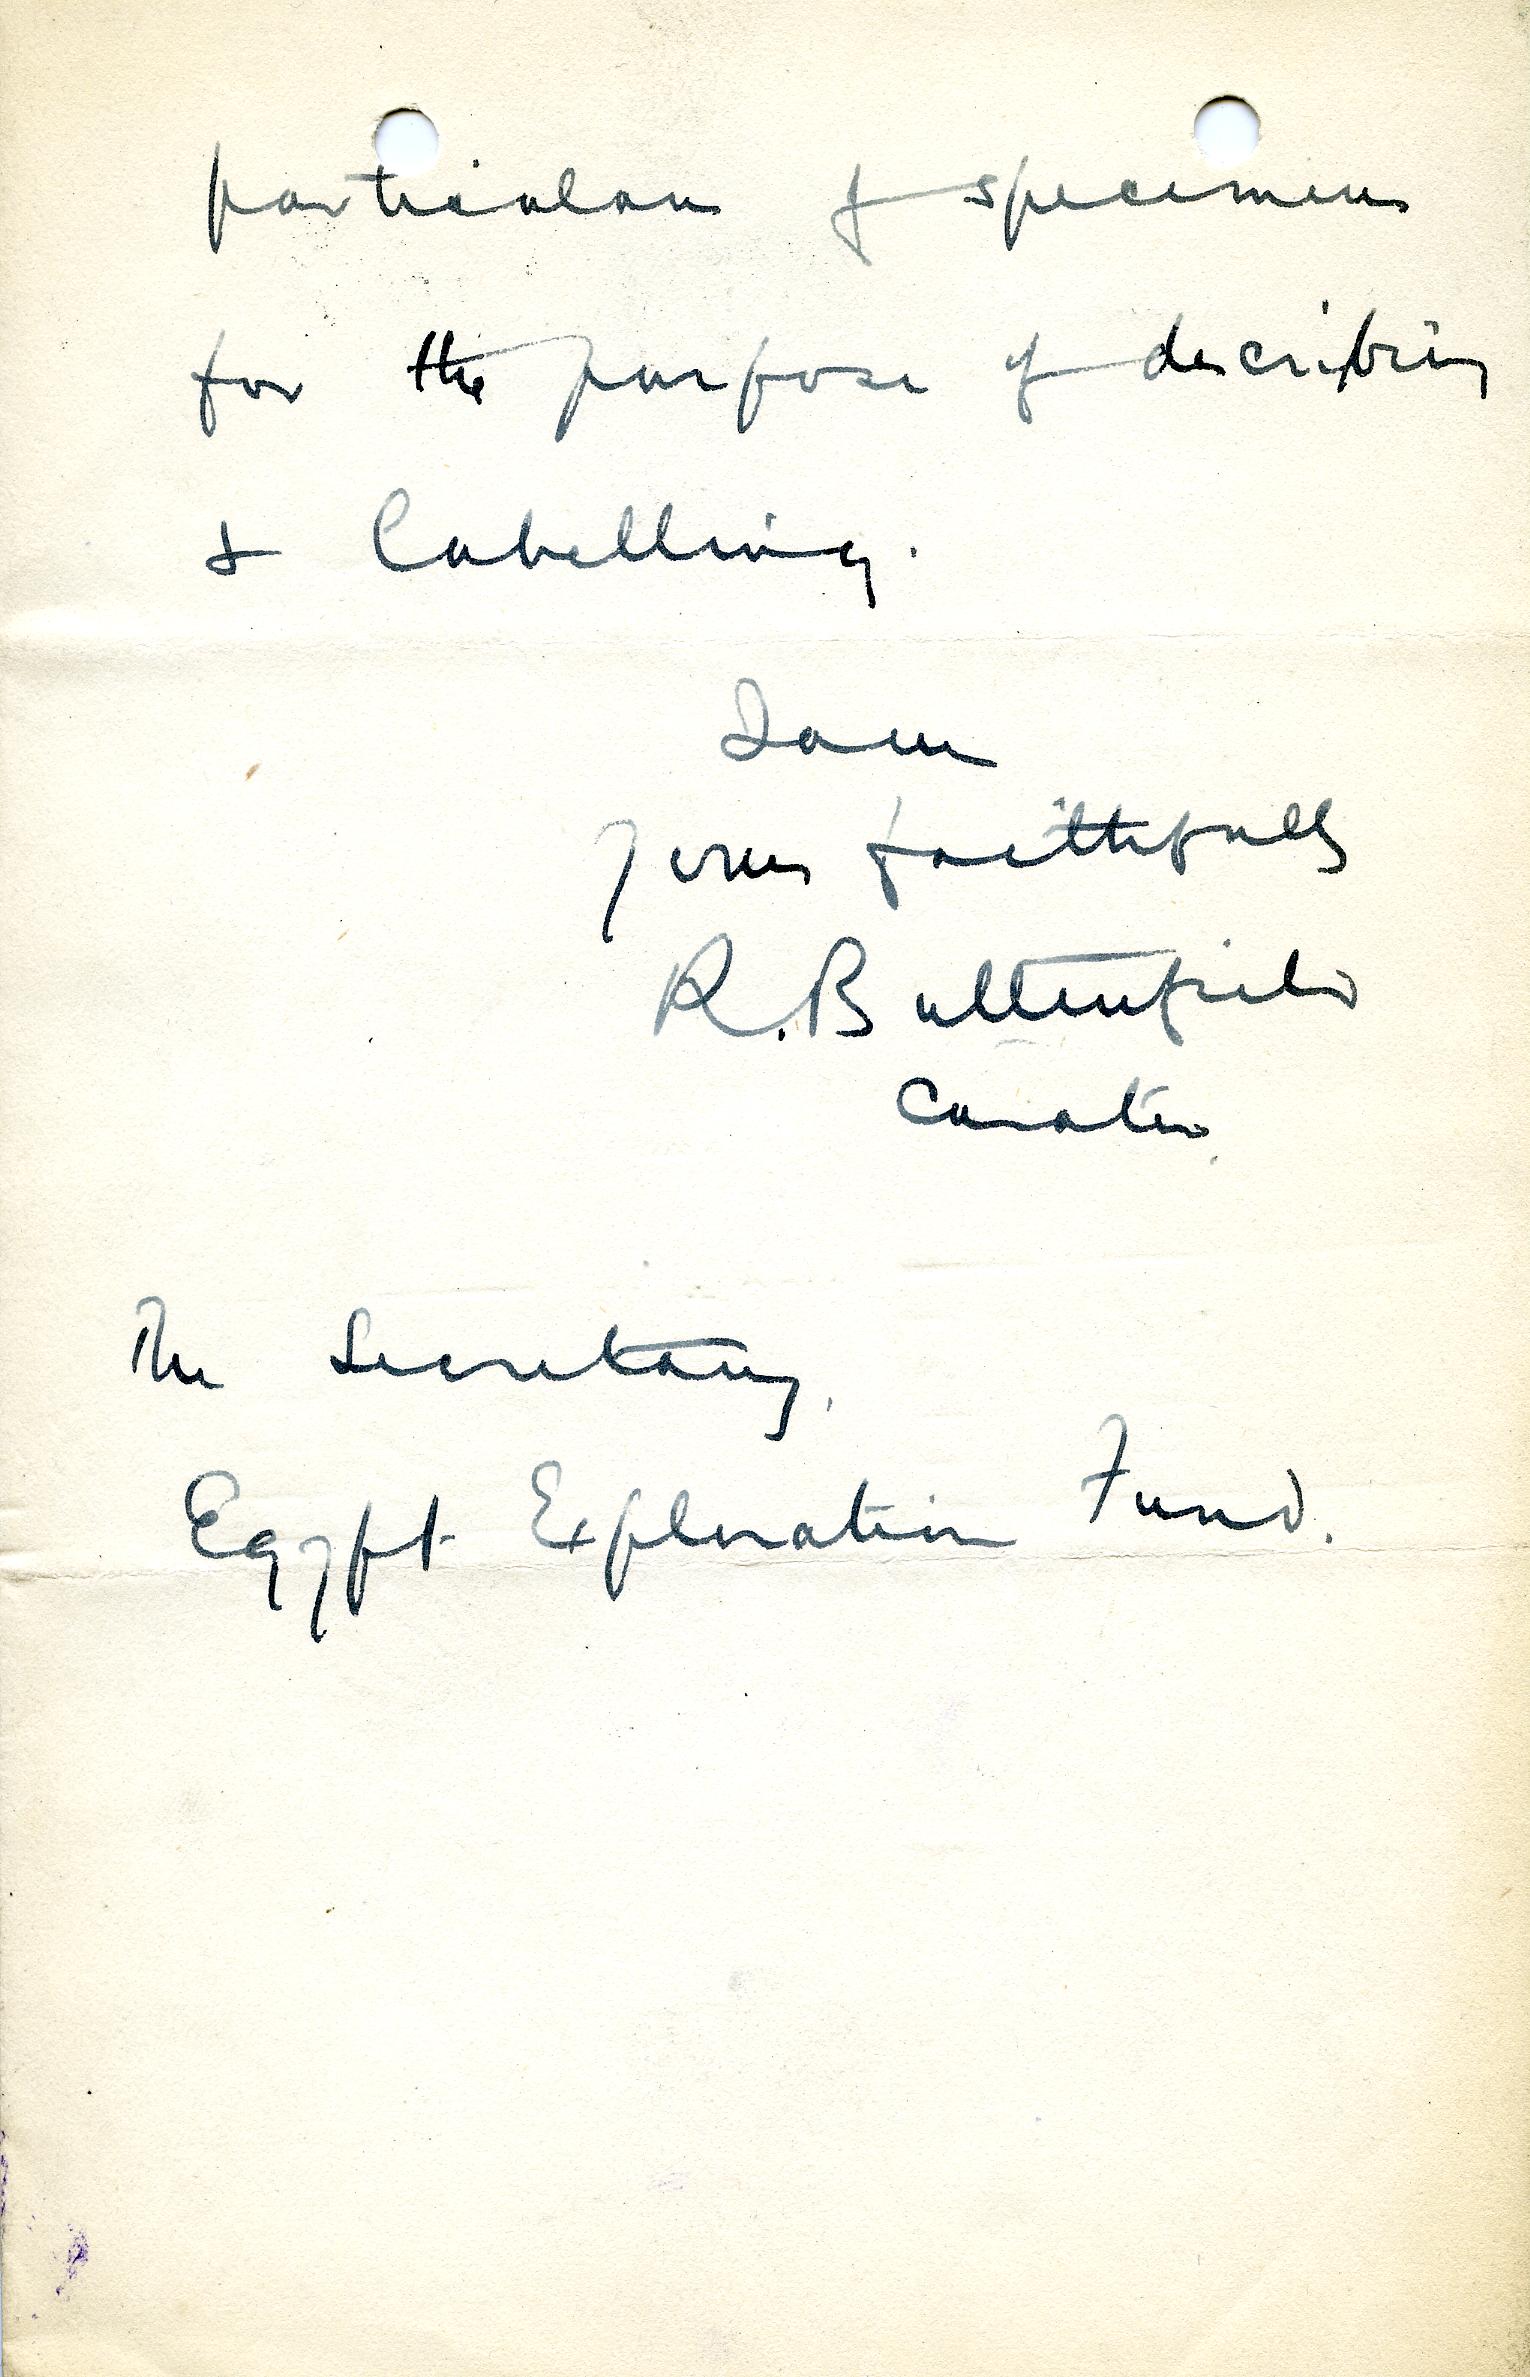 particulars of specimens
for the purpose of describing
& labelling.
I am
Yours faithfully
R. Butterfield
Curator.
The Secretary,
Egypt Exploration Fund.